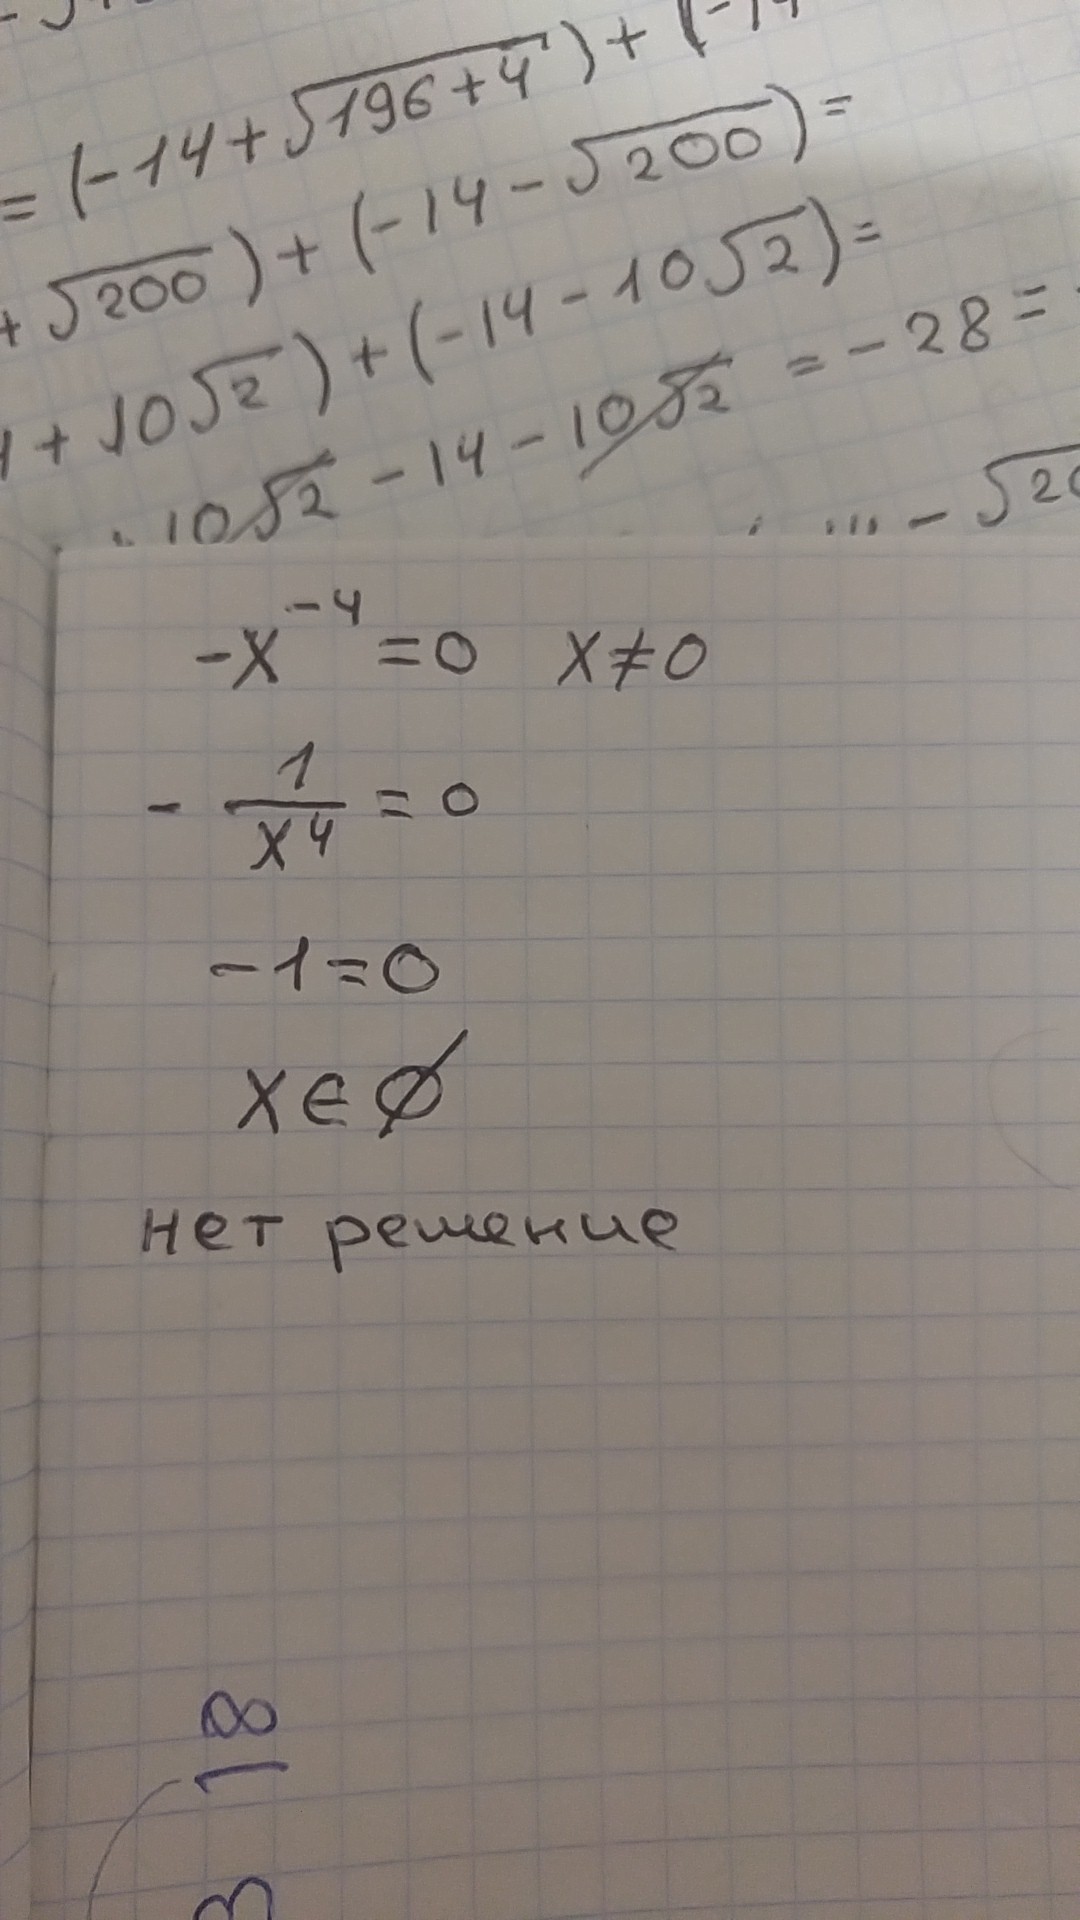 = (-14+√196+4) + (-14
+√200) + (-14-√200) =
+10√2) + (-14-10√2) =
10√2 - 14 - 10√2 = -28 =
... - √20
-x⁻⁴ = 0 x ≠ 0
- 1/x⁴ = 0
-1 = 0
x ∈ ∅
нет решение
18